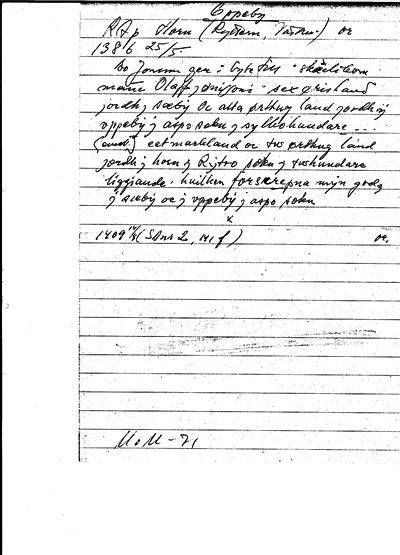 Eppeby
RAp Horn (Ryttern, Tuhu.) or
1386 25/5
Bo Jonsson ger i byte till "skælikom
manne Olaff jonissone "sex ørisland
jordh j sæby oc atta ørthug land jordh j
vppeby j aspo sokn j sylbohundare ...
(emot) eet markland oc tw ørthug land
jordh j horn j Ritro sokn j tuhundare
liggiande, huilken forskrepna myn godz
j sæby oc j vppeby j aspo sokn
x
1409 (SDns 2, 141 f) or.
MoM-71